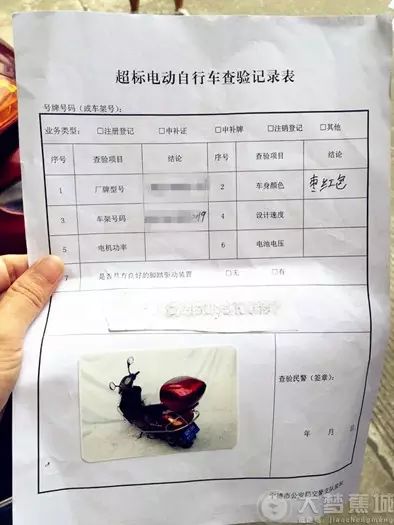 超标电动自行车查验记录表
号牌号码（或车架号）：
业务类型： □注册登记 □申补证 □申补牌 □注销登记 □其他
序号 查验项目 结论 序号 查验项目 结论
1 厂牌型号 2 车身颜色 枣红色
3 车架号码 4 设计速度
5 电机功率 6 电池电压
7 是否具有良好的脚踏驱动装置 □无 □有
查验民警（签章）：
年 月 日
大梦蕉城